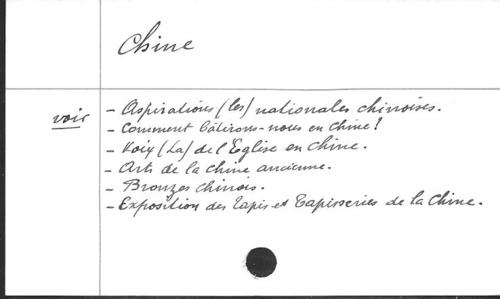 Chine
voir - Aspirations (les) nationales chinoises.
- Comment bâtirons-nous en Chine!
- Voix (La) de l'Eglise en Chine.
- Arts de la Chine ancienne.
- Bronzes chinois.
- Exposition des Tapis et Tapisseries de la Chine.